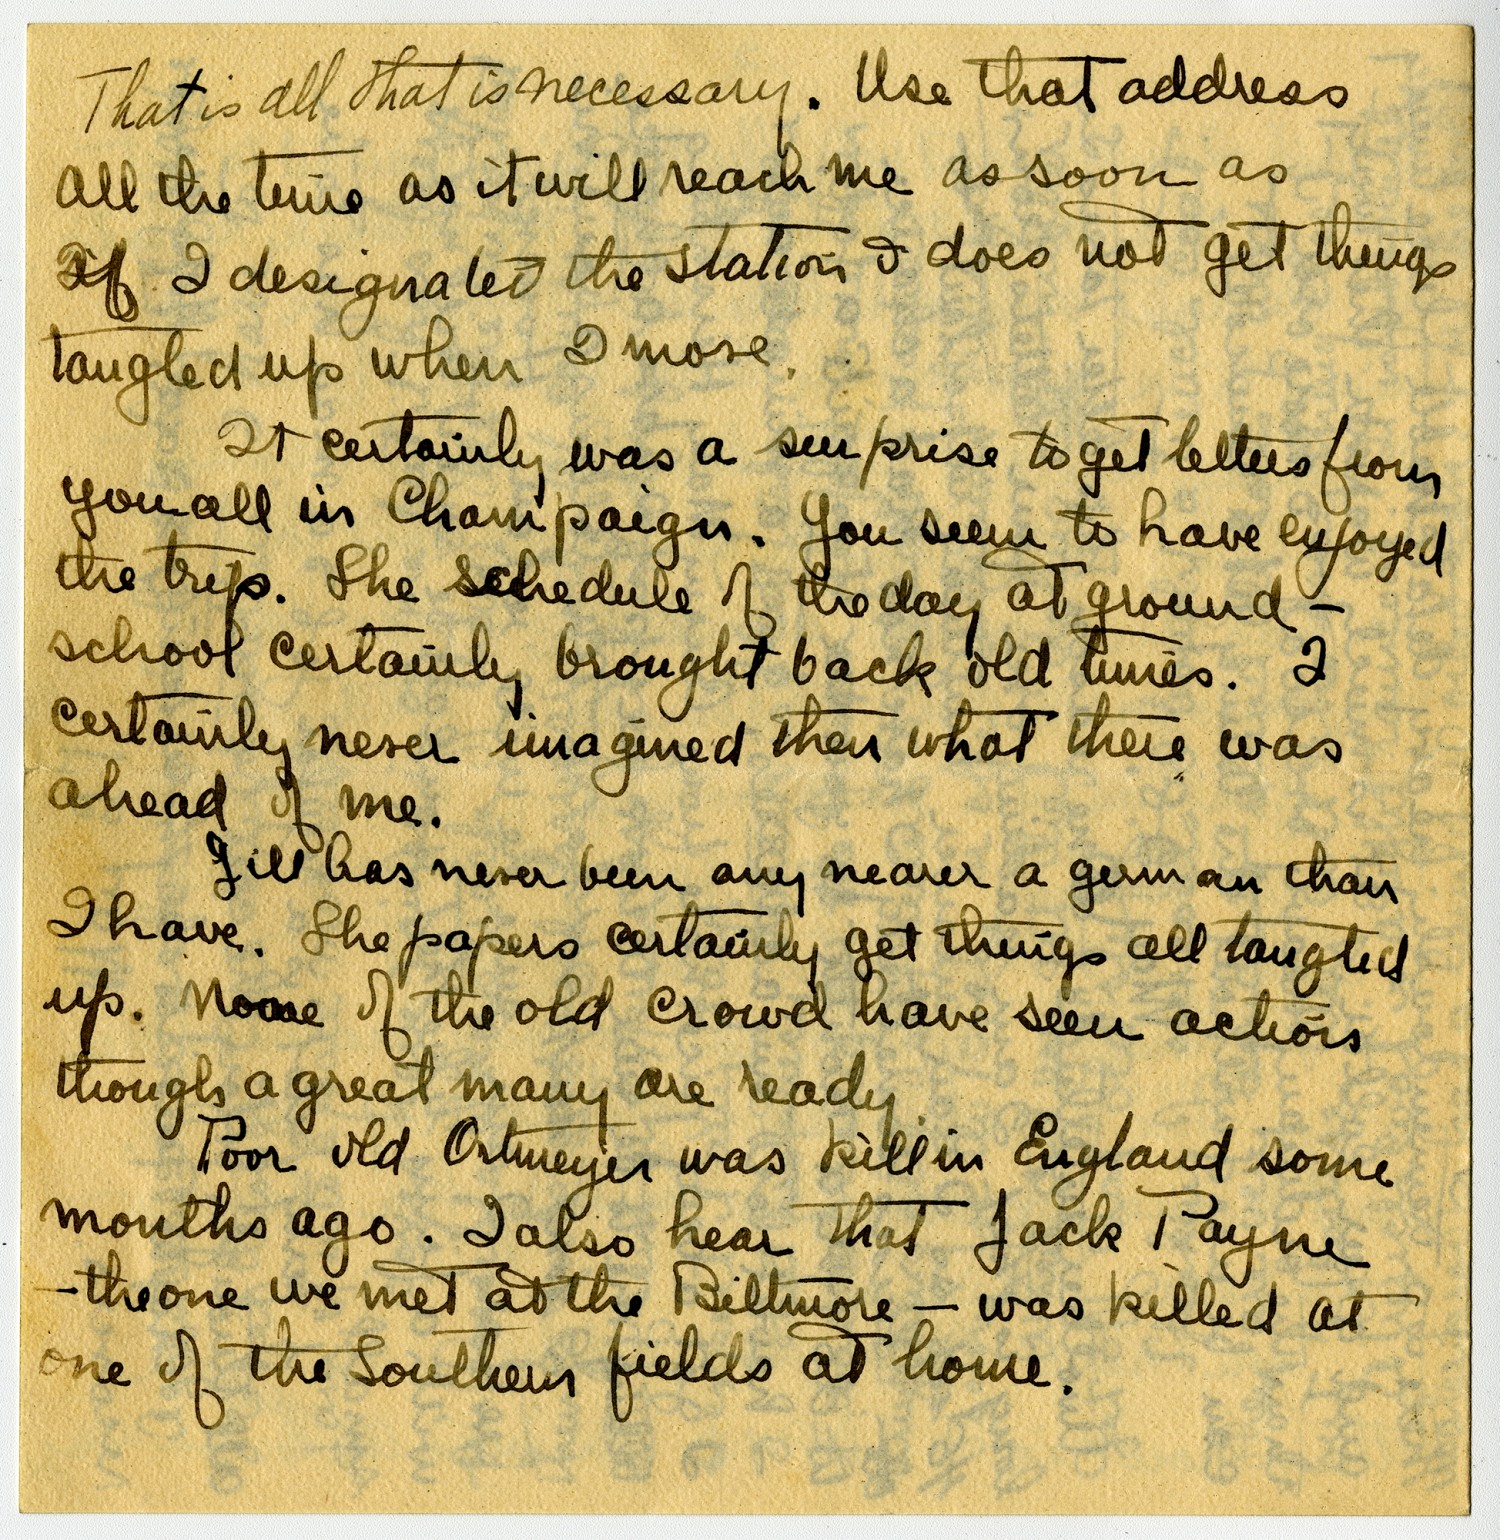 That is all that is necessary. Use that address
all the time as it will reach me as soon as
if I designated the station & does not get things
tangled up when I move.
It certainly was a surprise to get letters from
you all in Champaign. You seem to have enjoyed
the trip. The schedule of the day at ground-
school certainly brought back old times. I
certainly never imagined then what there was
ahead of me.
Gill has never been any nearer a german than
I have. The papers certainly get things all tangled
up. None of the old crowd have seen action
though a great many are ready.
Poor old Ortmeyer was kill in England some
months ago. I also hear that Jack Payne
- the one we met at the Biltmore - was killed at
one of the Southern fields at home.